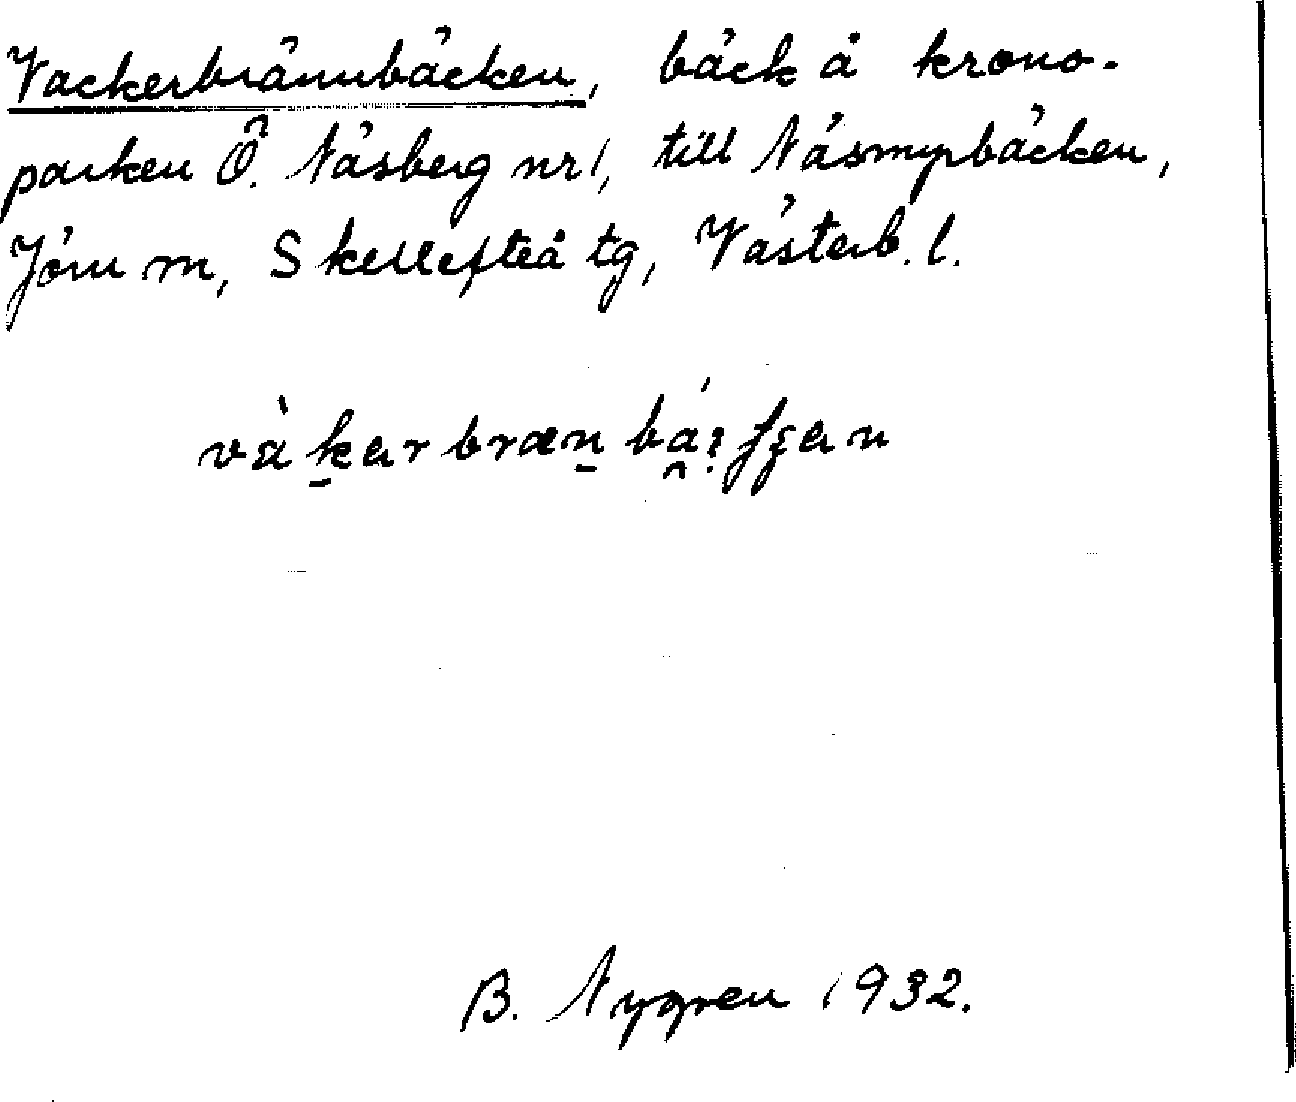 Vackerbrännbäcken, bäck å krono-
parken Ö. Näsberg nr 1, till Näsmyrbäcken,
Jörn m, Skellefteå tg, Västerb. l.
B. Nygren 1932.